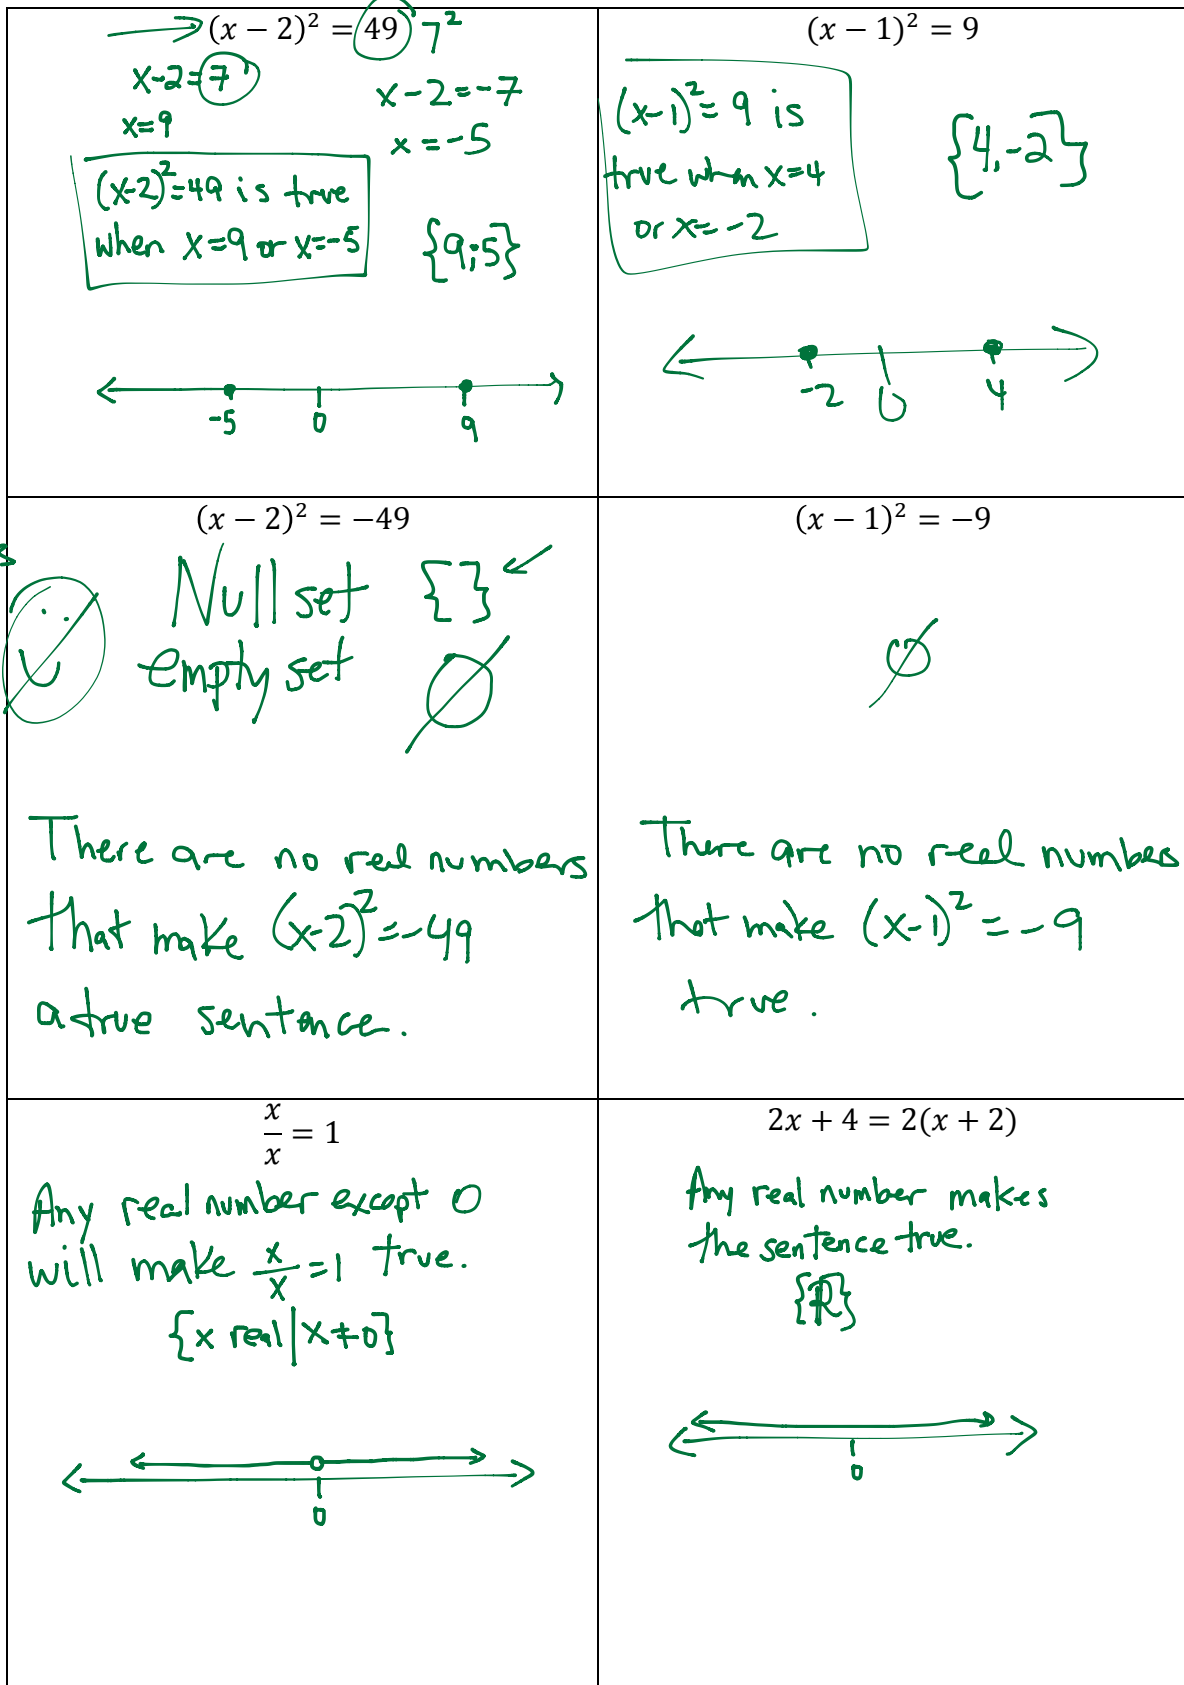 (x − 2)² = 49 7²
x-2=7
x=9
x-2=-7
x=-5
(x-2)²=49 is true
when x=9 or x=-5
{9,-5}
-5 0 9
(x − 1)² = 9
(x-1)²= 9 is
true when x=4
or x=-2
{4,-2}
-2 0 4
(x − 2)² = −49
Null set { }
empty set ∅
There are no real numbers
that make (x-2)²=-49
a true sentence.
(x − 1)² = −9
∅
There are no real numbers
that make (x-1)² = -9
true.
x/x = 1
Any real number except 0
will make x/x =1 true.
{x real|x≠0}
0
2x + 4 = 2(x + 2)
Any real number makes
the sentence true.
{ℝ}
0